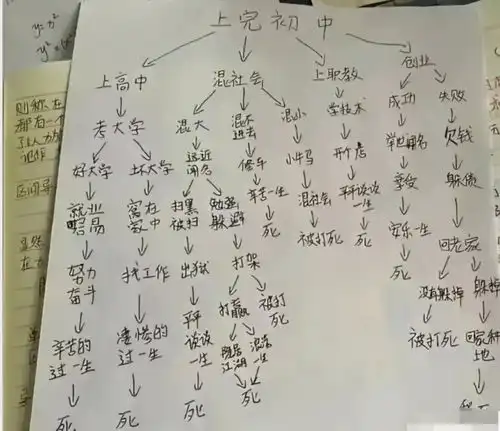 上完初中
上高中 混社会 上职教 创业
考大学 混大 混不进去 混小 学技术 成功 失败
好大学 坏大学 远近闻名 修车 小牛马 开个店 举世闻名 欠钱
就业 容易 窝在家中 扫黑被扫 勉强躲避 辛苦一生 混社会 平平谈谈一生 享受 躲债
努力奋斗 找工作 出狱 打架 死 被打死 死 安乐一生 回老家
辛苦的过一生 凄惨的过一生 平平谈谈一生 打赢 被打死 死 没有躲掉 躲掉
江湖 一生 被打死 回家种地
死 死 死 死
y=x²
y²
则称
都有一个